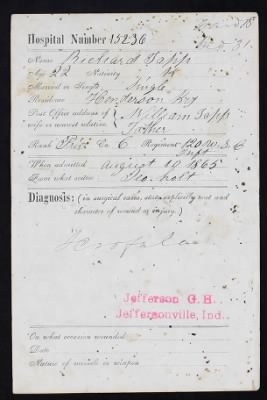 Hospital Number 15236
Name Richard Tapp
Age 22 Nativity
Married or Single Single
Residence Henderson Ky
Post Office address of William Tapp
wife or nearest relation Father
Rank Priv. Co. G Regiment 120 U.S.C
When admitted August 19 1865
From what source
Diagnosis: (in surgical cases, state explicitly seat and
character of wound or injury.)
Jefferson G. H.
Jeffersonville, Ind.
On what occasion wounded
Date
Nature of missile or weapon